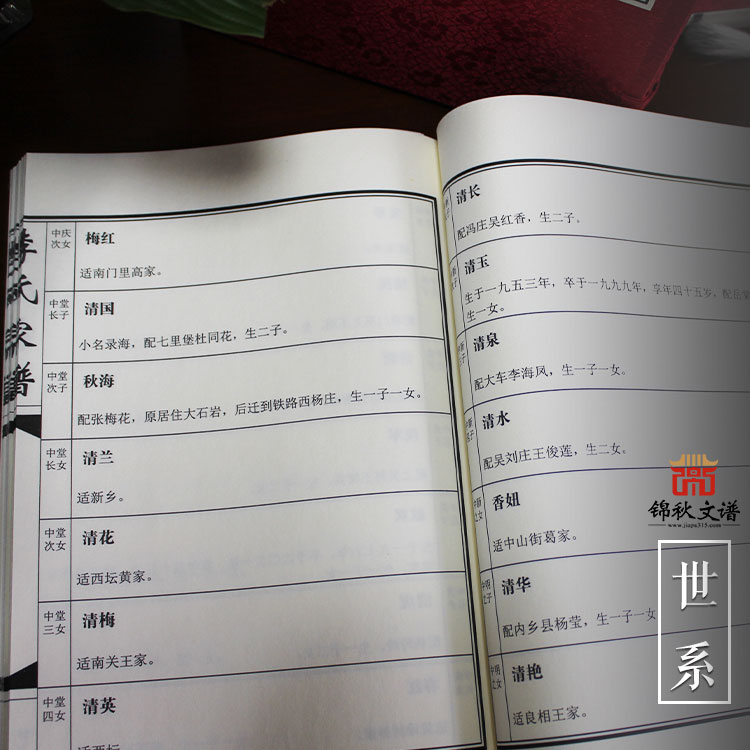 李氏家谱
中庆
次女
梅红
适南门里高家。
中堂
长子
清国
小名录海，配七里堡杜同花，生二子。
中堂
次子
秋海
配张梅花，原居住大石岩，后迁到铁路西杨庄，生一子一女。
中堂
长女
清兰
适新乡。
中堂
次女
清花
适西坛黄家。
中堂
三女
清梅
适南关王家。
中堂
四女
清英
适西坛
清长
配冯庄吴红香，生二子。
清玉
生于一九五三年，卒于一九九九年，享年四十五岁，配岳
生一女。
清泉
配大车李海凤，生一子一女。
清水
配吴刘庄王俊莲，生二女。
香妞
适中山街葛家。
清华
配内乡县杨莹，生一子一女
清艳
适良相王家。
锦秋文谱
www.jiapu315.com
世系